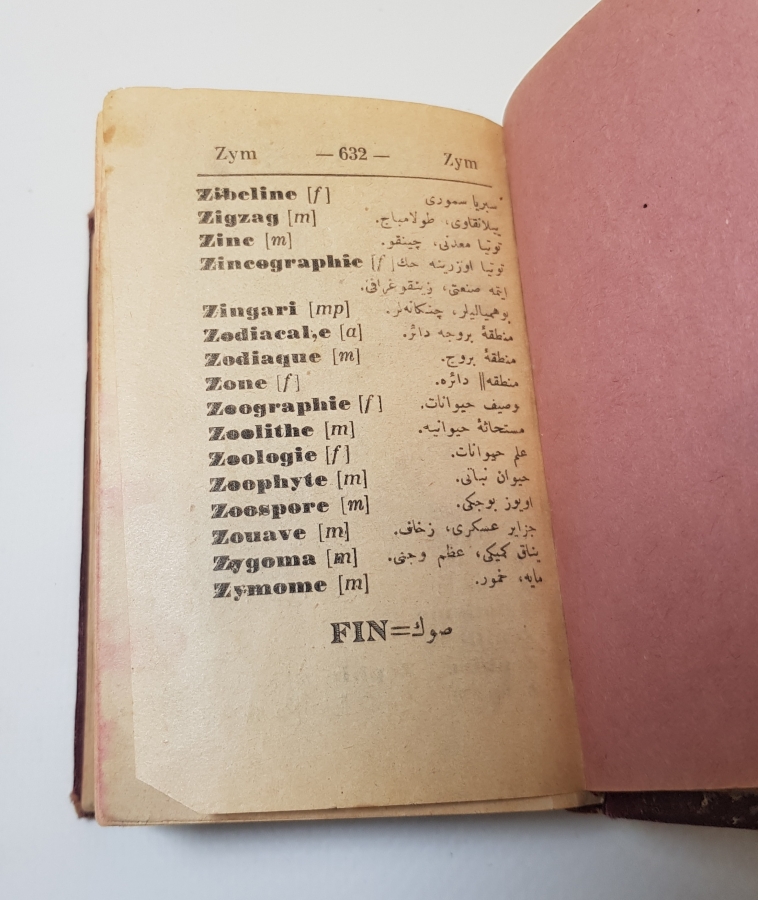 Zym — 632 — Zym
Zibeline [f] سبریا سموری
Zigzag [m] ییلانقاوی، طولامباج.
Zinc [m] توتیا معدنی، چینقو.
Zincographie [f] توتیا اوزرینه حك
ایتمه صنعتی، زینقوغرافی.
Zingari [mp] بوهمیالیلر، چنكانه‌لر.
Zodiacal,e [a] منطقهٔ بروجه دائر.
Zodiaque [m] منطقهٔ بروج.
Zone [f] منطقه || دائره.
Zoographie [f] وصیف حیوانات.
Zoolithe [m] مستحاثهٔ حیوانیه.
Zoologie [f] علم حیوانات.
Zoophyte [m] حیوان نباتی.
Zoospore [m] اویوز بوجكی.
Zouave [m] جزایر عسكری، زخاف.
Zygoma [m] یناق كمیكی، عظم وجنی.
Zymome [m] مایه، خمور.
FIN=صوك